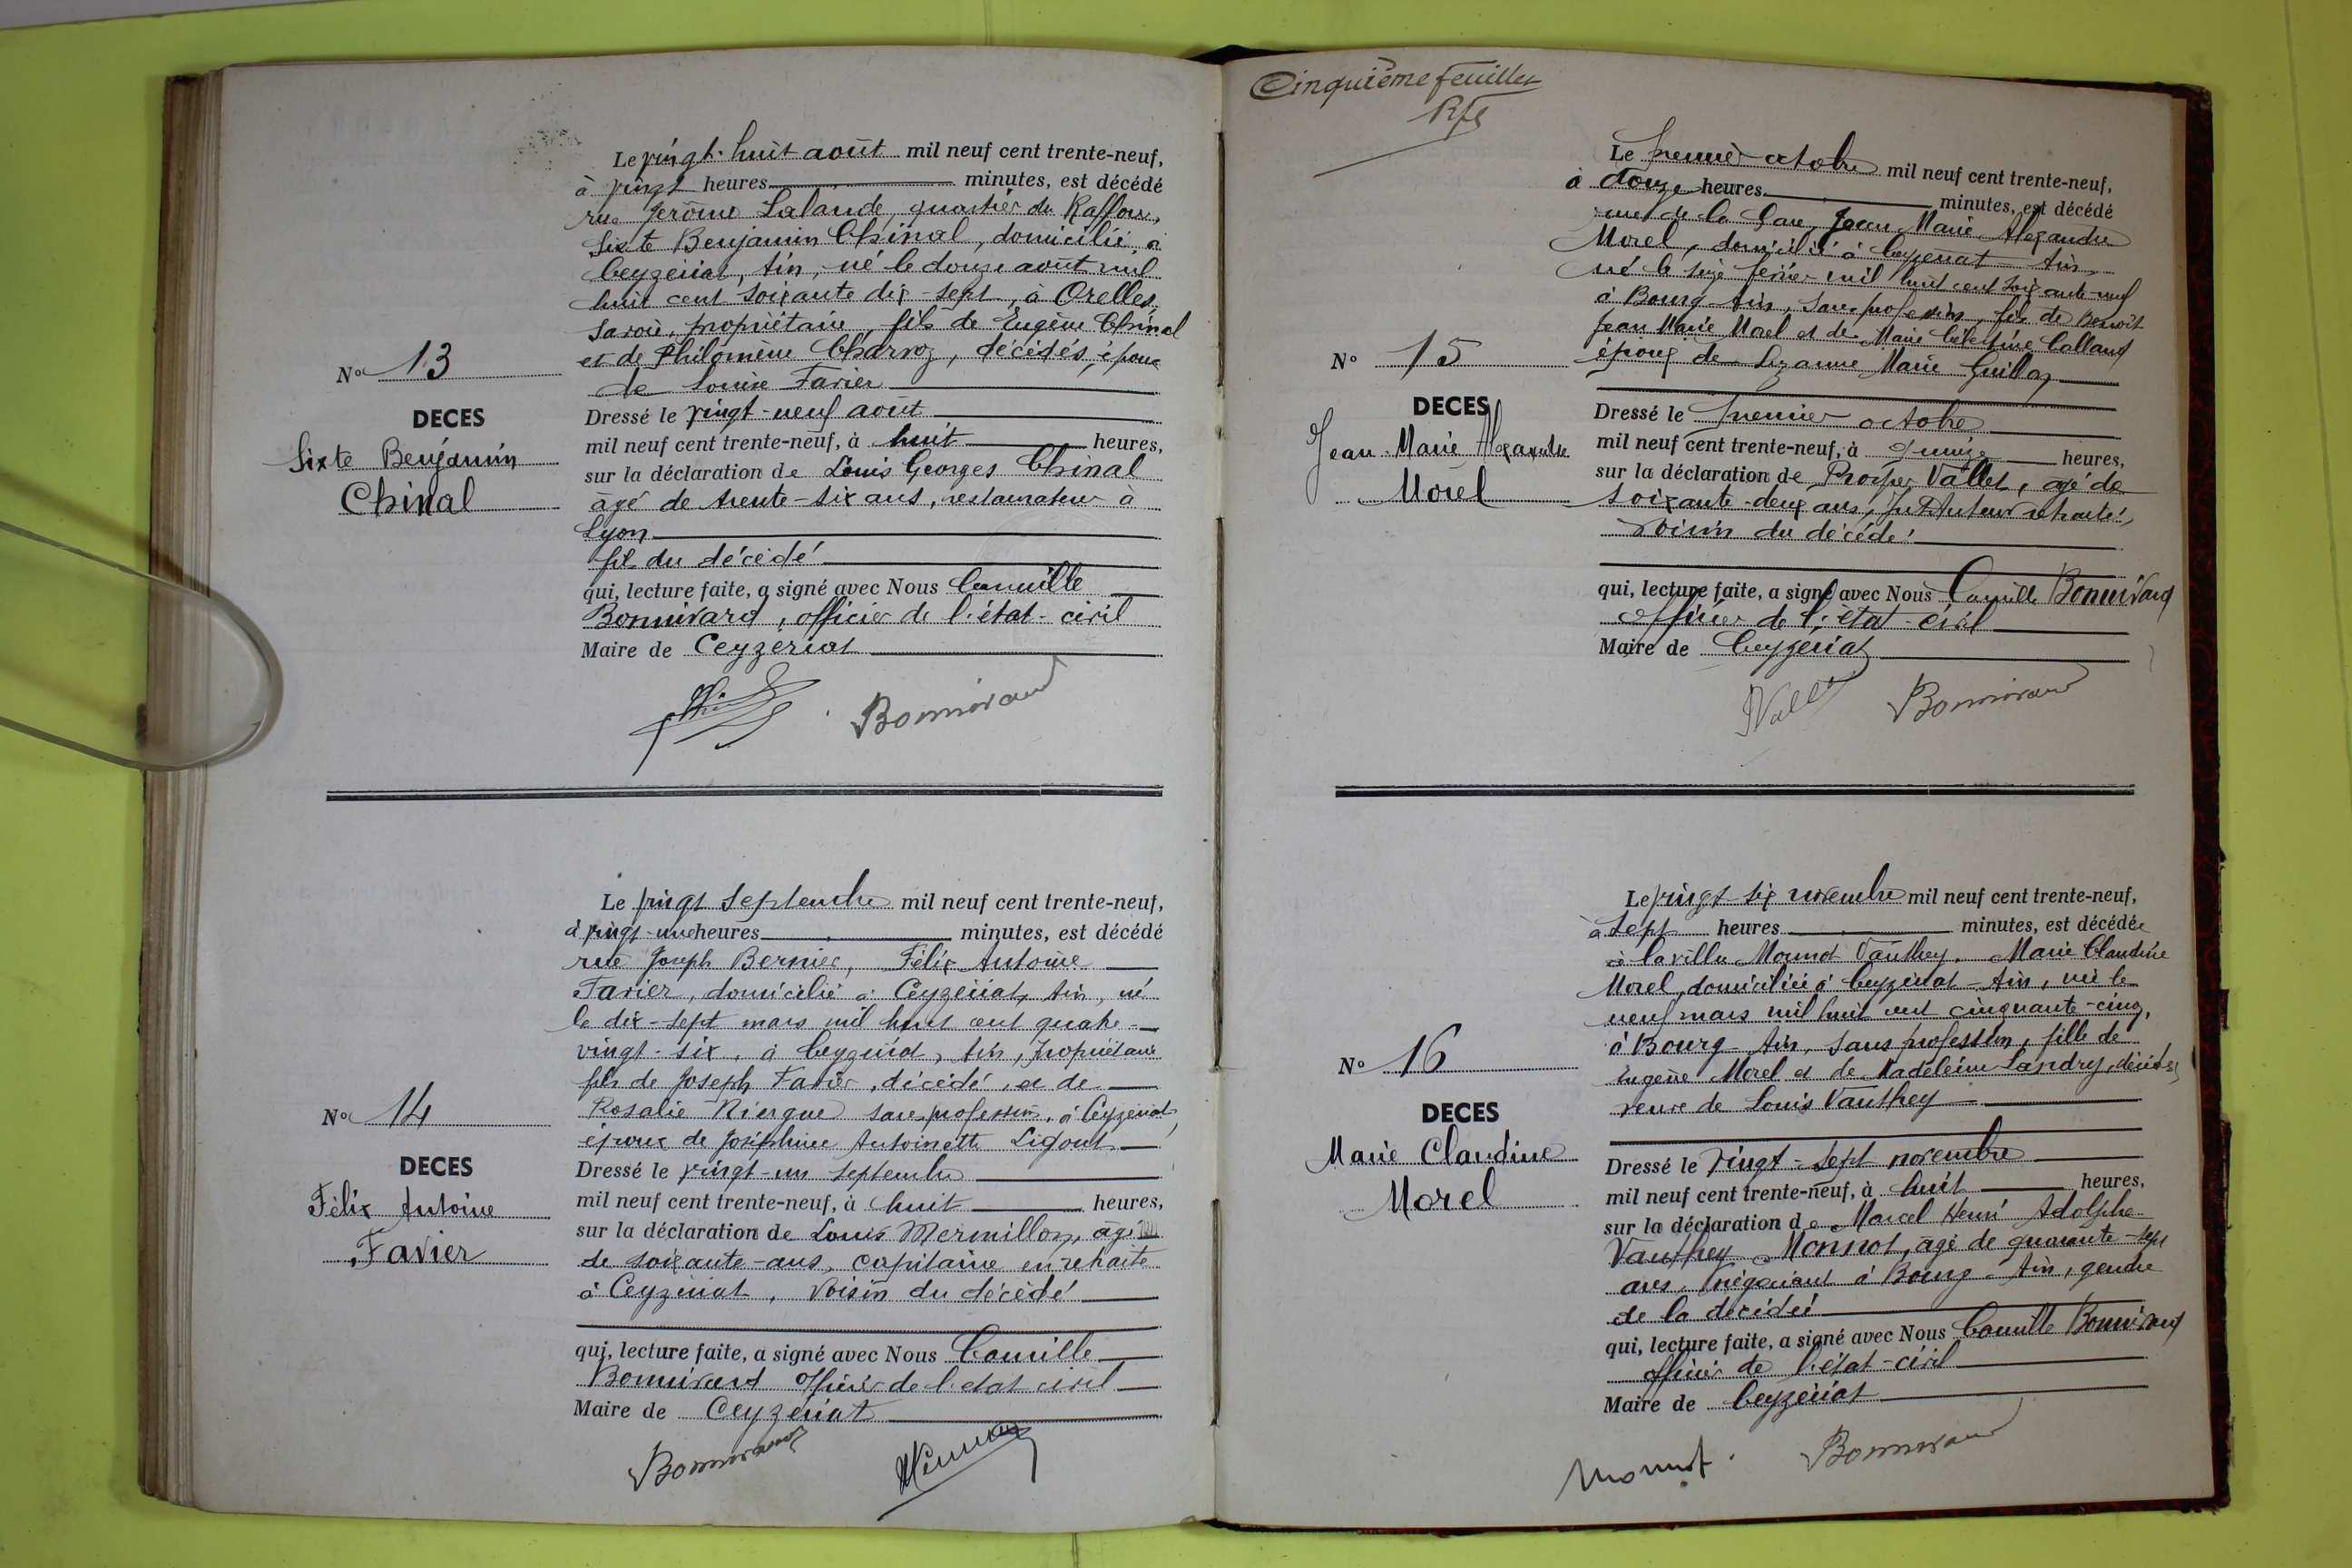 Le vingt-huit août mil neuf cent trente-neuf,
à vingt heures minutes, est décédé
rue Jérôme Lalande, quartier du Raffour,
Sixte Benjamin Chinal, domicilié à
Ceyzériat, Ain, né le douze août mil
huit cent soixante dix-sept, à Orelles,
Savoie, propriétaire, fils de Eugène Chinal
et de Philomène Charvoz, décédés, époux
de Louise Favier
No 13
DECES
Sixte Benjamin
Chinal
Dressé le vingt-neuf août
mil neuf cent trente-neuf, à huit heures,
sur la déclaration de Louis Georges Chinal
âgé de trente-six ans, restaurateur à
Lyon
fils du décédé
qui, lecture faite, a signé avec Nous Camille
Bonnivard, officier de l'état-civil
Maire de Ceyzériat
Bonnivard
Le vingt septembre mil neuf cent trente-neuf,
à vingt-une heures minutes, est décédé
rue Joseph Bernier, Félix Antoine
Favier, domicilié à Ceyzériat, Ain, né
le dix-sept mars mil huit cent quatre-
vingt-six, à Ceyzériat, Ain, propriétaire
fils de Joseph Favier, décédé, et de
Rosalie sans profession, à Ceyzériat,
époux de Joséphine Antoinette Ligout
No 14
DECES
Félix Antoine
Favier
Dressé le vingt-un septembre
mil neuf cent trente-neuf, à huit heures,
sur la déclaration de Louis Mermillon, âgé
de soixante-ans, capitaine en retraite
à Ceyzériat, voisin du décédé
qui, lecture faite, a signé avec Nous Camille
Bonnivard officier de l'état civil
Maire de Ceyzériat
Bonnivard
Cinquième feuillet
Le premier octobre mil neuf cent trente-neuf,
à douze heures minutes, est décédé
rue de la Gare, Jean Marie Alexandre
Morel, domicilié à Ceyzériat Ain,
né le seize février mil huit cent soixante-neuf
à Bourg-Ain, sans profession, fils de Benoît
Jean Marie Morel et de Marie Célestine Colland
époux de Suzanne Marie Guilloz
No 15
DECES
Jean Marie Alexandre
Morel
Dressé le premier octobre
mil neuf cent trente-neuf, à quinze heures,
sur la déclaration de Prosper Vallet, âgé de
soixante-deux ans, Instituteur retraité,
voisin du décédé
qui, lecture faite, a signé avec Nous Camille Bonnivard
officier de l'état-civil
Maire de Ceyzériat
Bonnivard
Le vingt-six novembre mil neuf cent trente-neuf,
à sept heures minutes, est décédée
à la villa Monnot Vauthey, Marie Claudine
Morel, domiciliée à Ceyzériat-Ain, née le
neuf mars mil huit cent cinquante-cinq,
à Bourg Ain, sans profession, fille de
Eugène Morel et de Madeleine Landry, décédés
veuve de Louis Vauthey
No 16
DECES
Marie Claudine
Morel
Dressé le vingt-sept novembre
mil neuf cent trente-neuf, à huit heures,
sur la déclaration de Marcel Henri Adolphe
Vauthey Monnot, âgé de quarante-sept
ans, négociant à Bourg-Ain, gendre
de la décédée
qui, lecture faite, a signé avec Nous Camille Bonnivard
officier de l'état-civil
Maire de Ceyzériat
Monnot.
Bonnivard